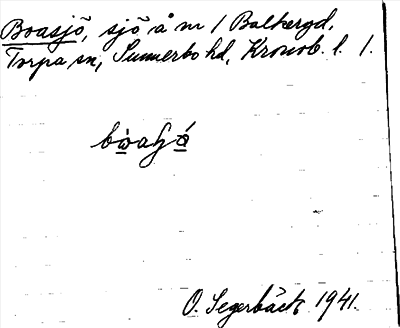 Boasjö, sjö å m / Balkergd,
Torpa sn, Sunnerbo hd, Kronob. l. 1.
bòaꞕó
O. Segerbäck 1941.